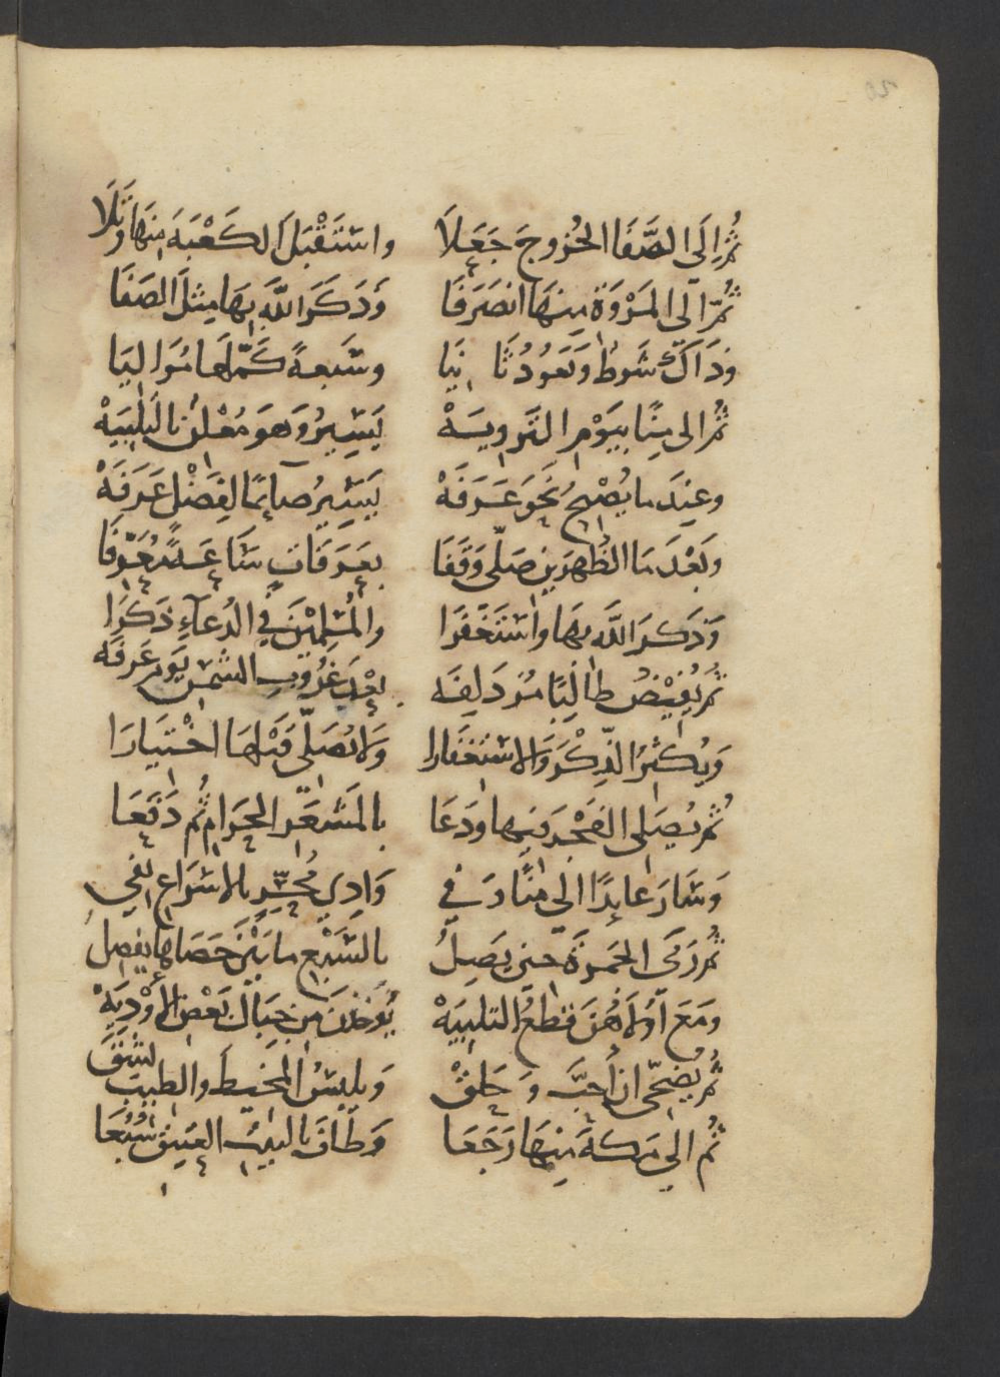 ثُمَّ إِلَى الصَّفَا الخُرُوجَ جَعَلَا واسْتَقْبَلَ الكَعْبَةَ مِنهَا وَتَلَا
ثُمَّ الَى المَرْوَةِ مِنهَا انصَرَفَا وَذَكَرَ اللَّهَ بِهَا مِثلَ الصَفَا
وذَاكَ شَوطٌ وَيَعُودُ ثَانِيَا وسَبعةً كَمَّلَهَا مُوَالِيَا
ثُمَّ الى مِنًا بِيَوْمِ التَّروِيَةْ يَسِيرُ وَهوَ مُعْلِنٌ بالتَلبِيَةْ
وعِندَ ما يُصْبِحُ نَحوَ عَرَفَةْ يَسِيرُ صايمًا لِفَضْلِ عَرَفَةْ
وبَعْدَ مَا الظُّهرَينِ صَلَّى وَقَفَا بِعَرَفَاتٍ سَاعَةً مُعَرِّفَا
وَذَكرَ اللَّهَ بِهَا واسْتَغفَرَا والمُسْلِمِيْنَ فِي الدُعَآءِ ذكَرَا
ثُمَّ يُفِيْضُ طالِبًا مُزدَلِفَه بعْدَ غرُوبِ الشمْسِ يَومَ عَرَفَه
وَيُكثِرُ الذِّكْرَ وَالاستغفَارا وَلا يُصَلّى قَبْلهَا اخْتيَارَا
ثُمَّ يُصَلى الفَجْرَ فيها ودَعَا بالمَشعَرِ الحَرَامِ ثُم دَفَعَا
وَسَارَ عايدًا الى مِنًا وَفي وَادِي مُحَسِّرٍ بالاسْرَاعِ يَفِي
ثُمَّ رَمَى الجَمرَةَ حينَ يَصِلُ بالسَّبْعِ ما بَيْنَ حَصَاهَا يَفصِلُ
وَمَعَ أُولَاهُنَ قطعُ التلبيَهْ يُؤخَذنَ مِن جِبَالِ بَعْضِ الأَوْدِيَهْ
ثُمَّ يُضَحِّى ان أَحَبَّ وَحَلَقْ وَيلبسُ المَخِيطَ والطِيبُ
ثُم الى مَكةَ مِنهَا رَجَعَا وَطَافَ بالبَيْتِ العَتِيقِ سُبُعَا